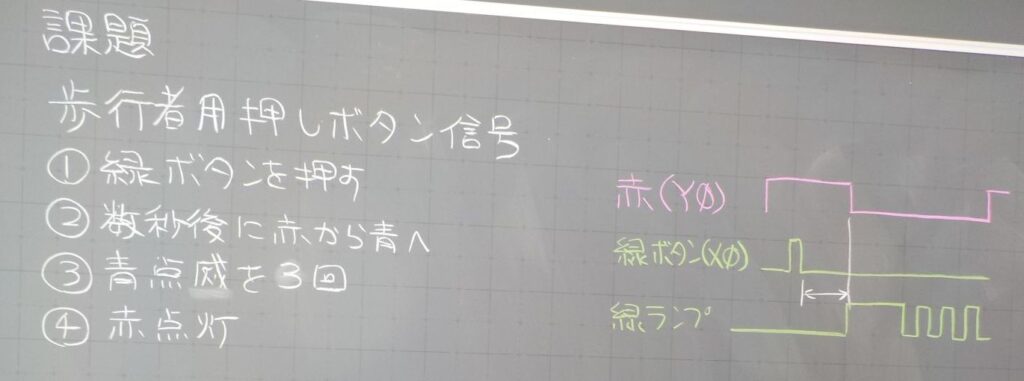 課題
歩行者用押しボタン信号
①緑ボタンを押す
②数秒後に赤から青へ
③青点滅を3回
④赤点灯
赤(Y0)
緑ボタン(X0)
緑ランプ